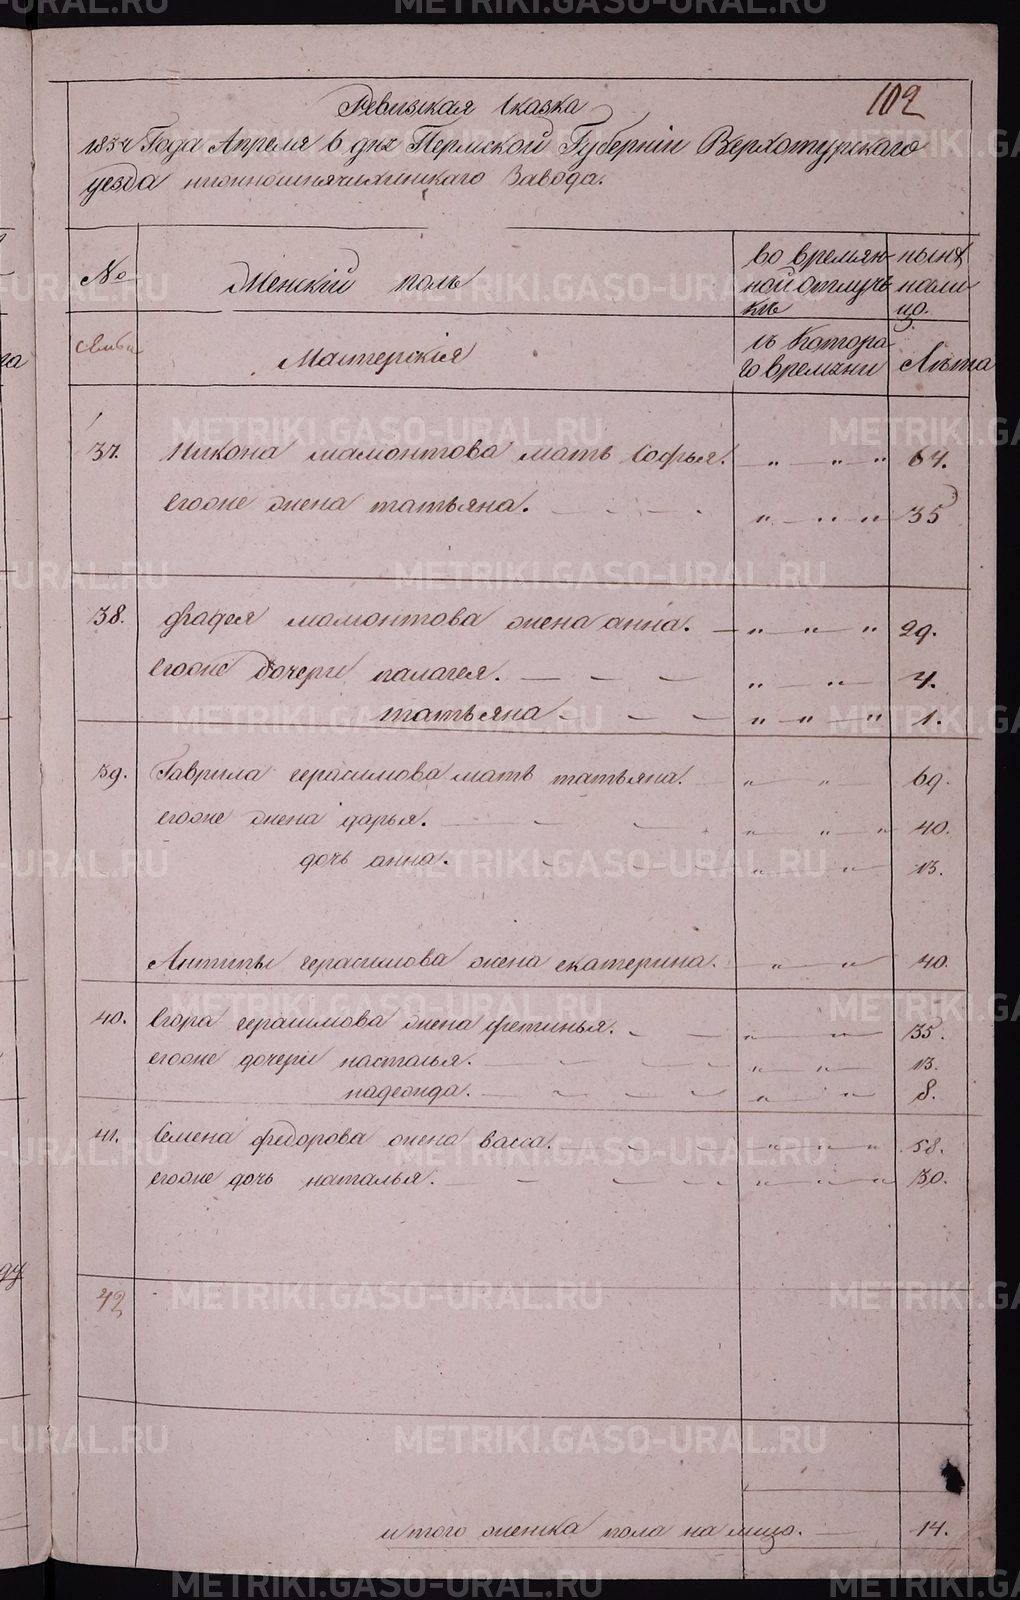 METRIKI.GASO-URAL.RU
102
Ревизская Сказка
1834 Года Апреля 6 дня Пермской Губернии Верхотурскаго
уезда нижнешнячихинскаго Завода.
№ Женскій полъ во времян- нынѣ
ной отлуч- нали
кѣ цо.
семьи Мастерскія съ Котора- Лѣта
го времяни
37. Никона мамонтова мать Софья. 64.
егоже жена татьяна. 35
38. фадея мамонтова жена анна. 29.
егоже дочери палагея. 4.
татьяна 1.
39. Гаврила герасимова мать татьяна. 69.
егоже жена дарья. 40.
дочь анна. 13.
Антипы герасимова жена екатерина. 40.
40. Егора герасимова жена фетинья. 35.
егоже дочери насталья. 13.
надежда. 8.
41. Семена федорова жена васса. 58.
егоже дочь наталья. 30.
42
итого женска пола на лицо. 14.